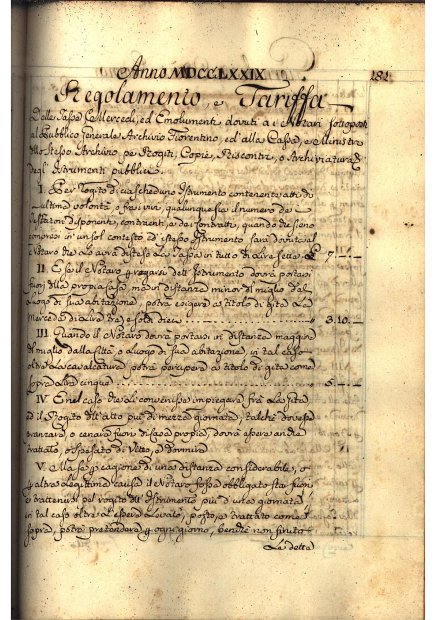 Anno MDCCLXXIX
181.
Regolamento, e Tariffa
Delle Tasse e Mercedi, ed Emolumenti dovuti ai Notari sottoposti
al Pubblico Generale Archivio Fiorentino, ed' alla Cassa, e Ministri
dello stesso Archivio pe Rogiti, Copie, Riscontri, o Archiviatura
degl' Istrumenti pubblici
I. Per Rogito di ciascheduno Istrumento contenente atti di
ultima volontà, o fra i vivi qualunque sia il numero de
Testatori disponenti, contraenti, e dei Contratti, quando che sieno
compresi in un sol contesto ed' istesso Istrumento sarà dovuta al
Notaro che lo avrà disteso la Tassa in tutto di Lire sette £ 7.—.—
II. E se il Notaro p rogarsi dell' Istrumento dovrà portarsi
fuori della propria casa, ma in distanza minor d'un miglio dal
Luogo di sua abitazione, potrà esigere a titolo di gita la
Mercede di Lire tre, e soldi dieci 3. 10. —
III. Quando il Notaro dovrà portarsi in distanza maggiore
d'un miglio dalla Città, o Luogo di sua abitazione, in tal caso
oltre la cavalcatura potrà percipere a titolo di gita come
sopra Lire cinque 5. — —
IV. E nel caso che li convenisse impiegare frà la Gita
ed il Rogito dell' atto più di mezza giornata, talchè dovesse
pranzare, o cenare fuori di Casa propria, dovrà essere anche
trattato, o spesato di Vitto, e dormire
V. Ma se p cagione di una distanza considerabile, o
p altra legittima causa il Notaro fosse obbligato star fuori,
e trattenersi pel rogito dell' Istrumento più d'una giornata
in tal caso oltre l'essere levato, posto, e trattato come
sopra, potrà pretendere p ogni giorno, benchè non finito
La detta